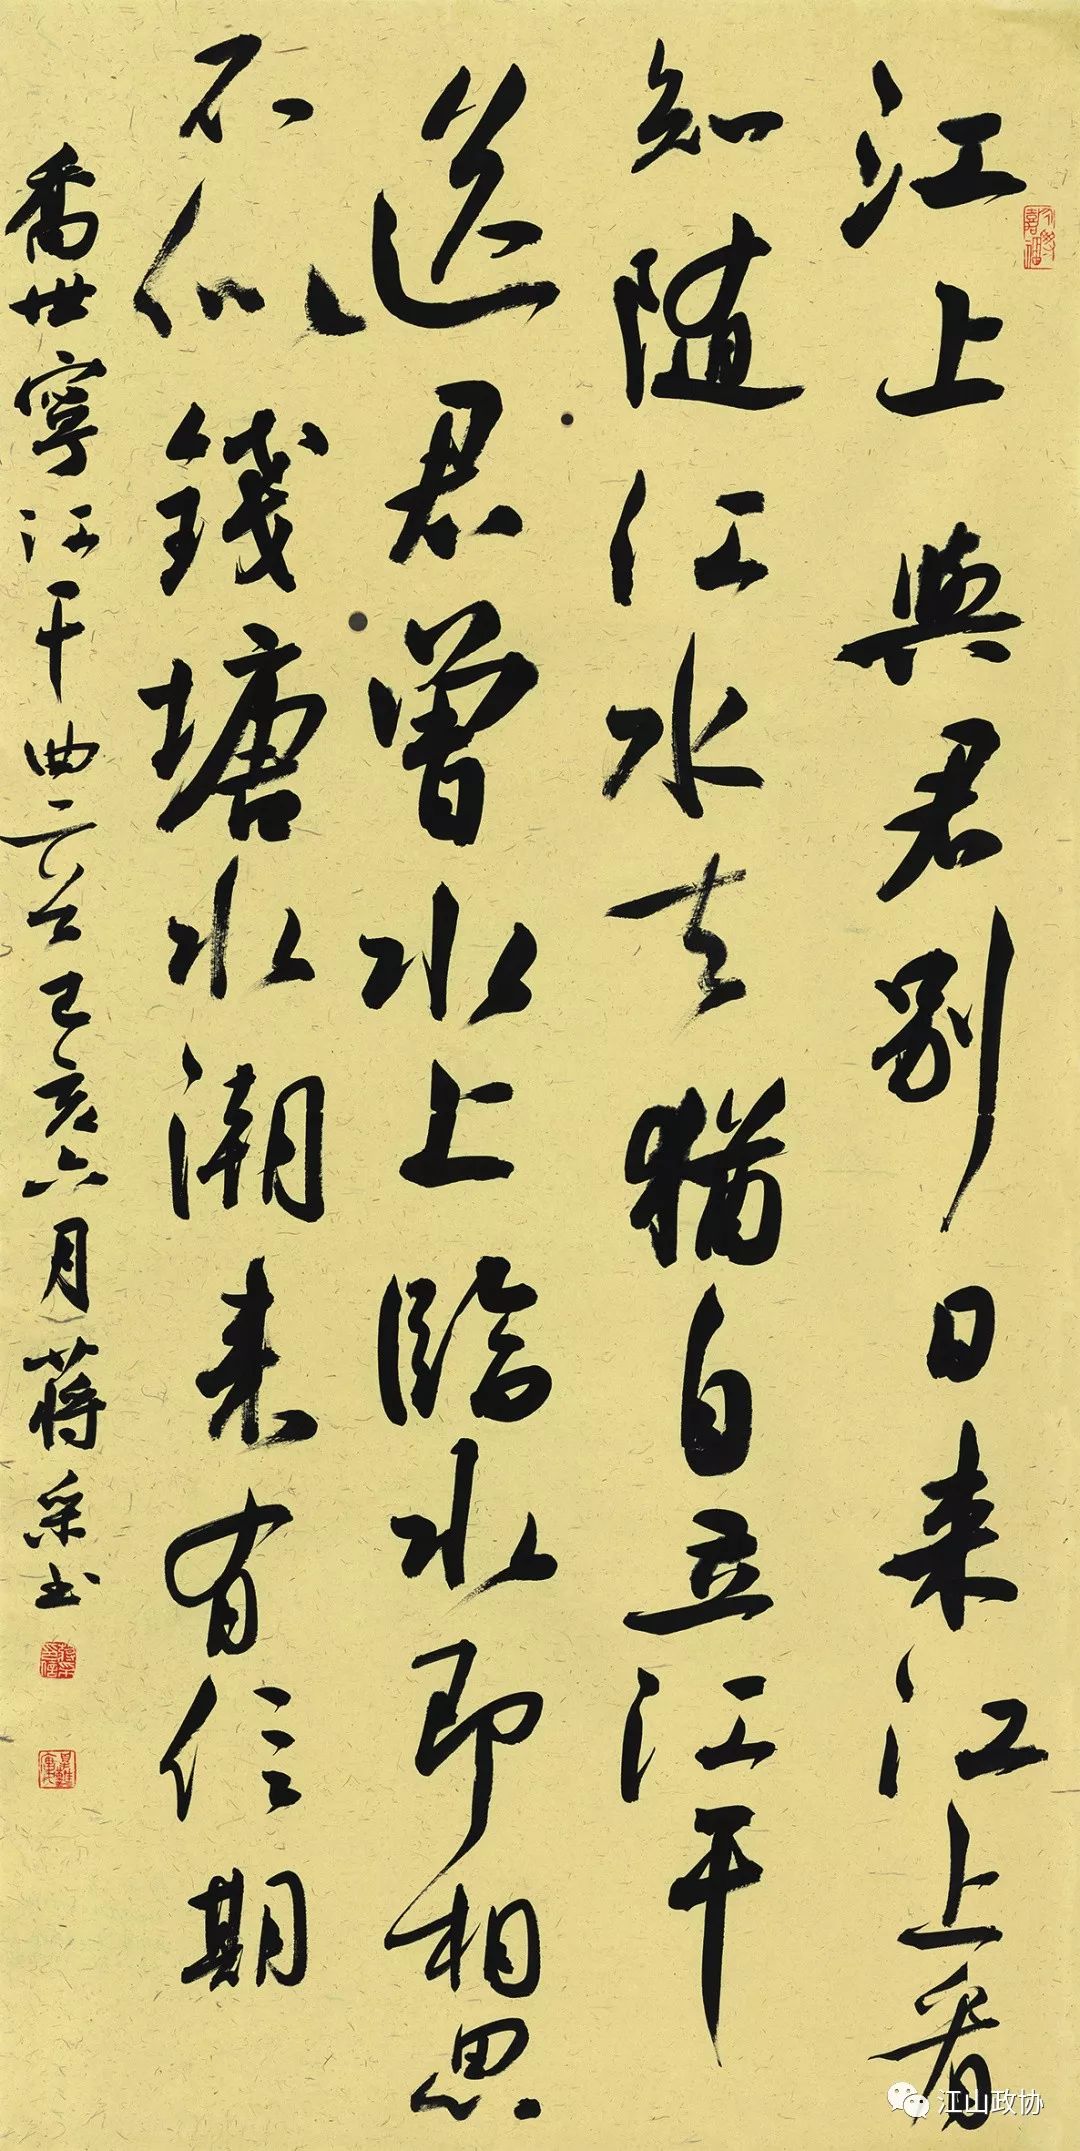 江上與君别日来江上看
知随江水去猶自立江干
送君曾水上臨水即相思
不似錢塘水潮来有信期
喬世寧江干曲二首己亥六月蒋采书
江山政协